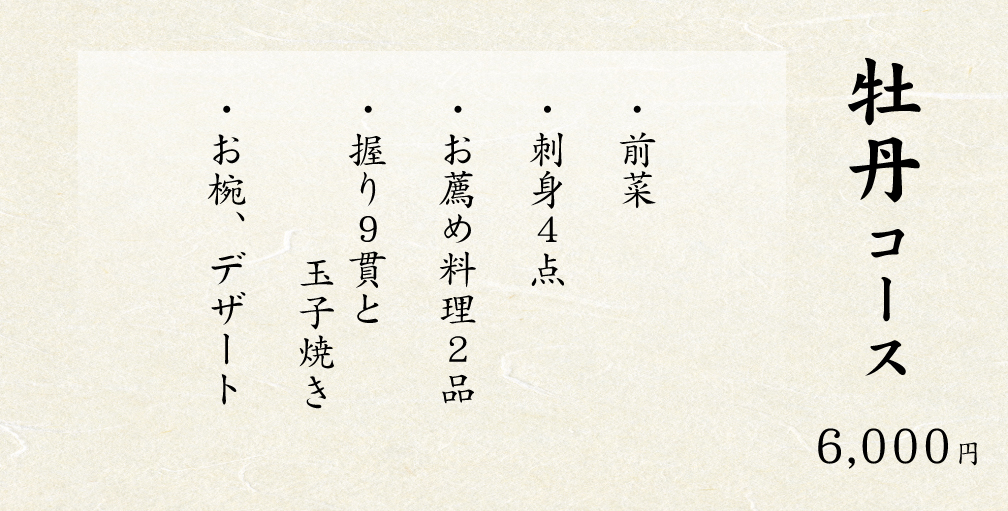 牡丹コース
6,000円
・前菜
・刺身4点
・お薦め料理2品
・握り9貫と
玉子焼き
・お椀、デザート